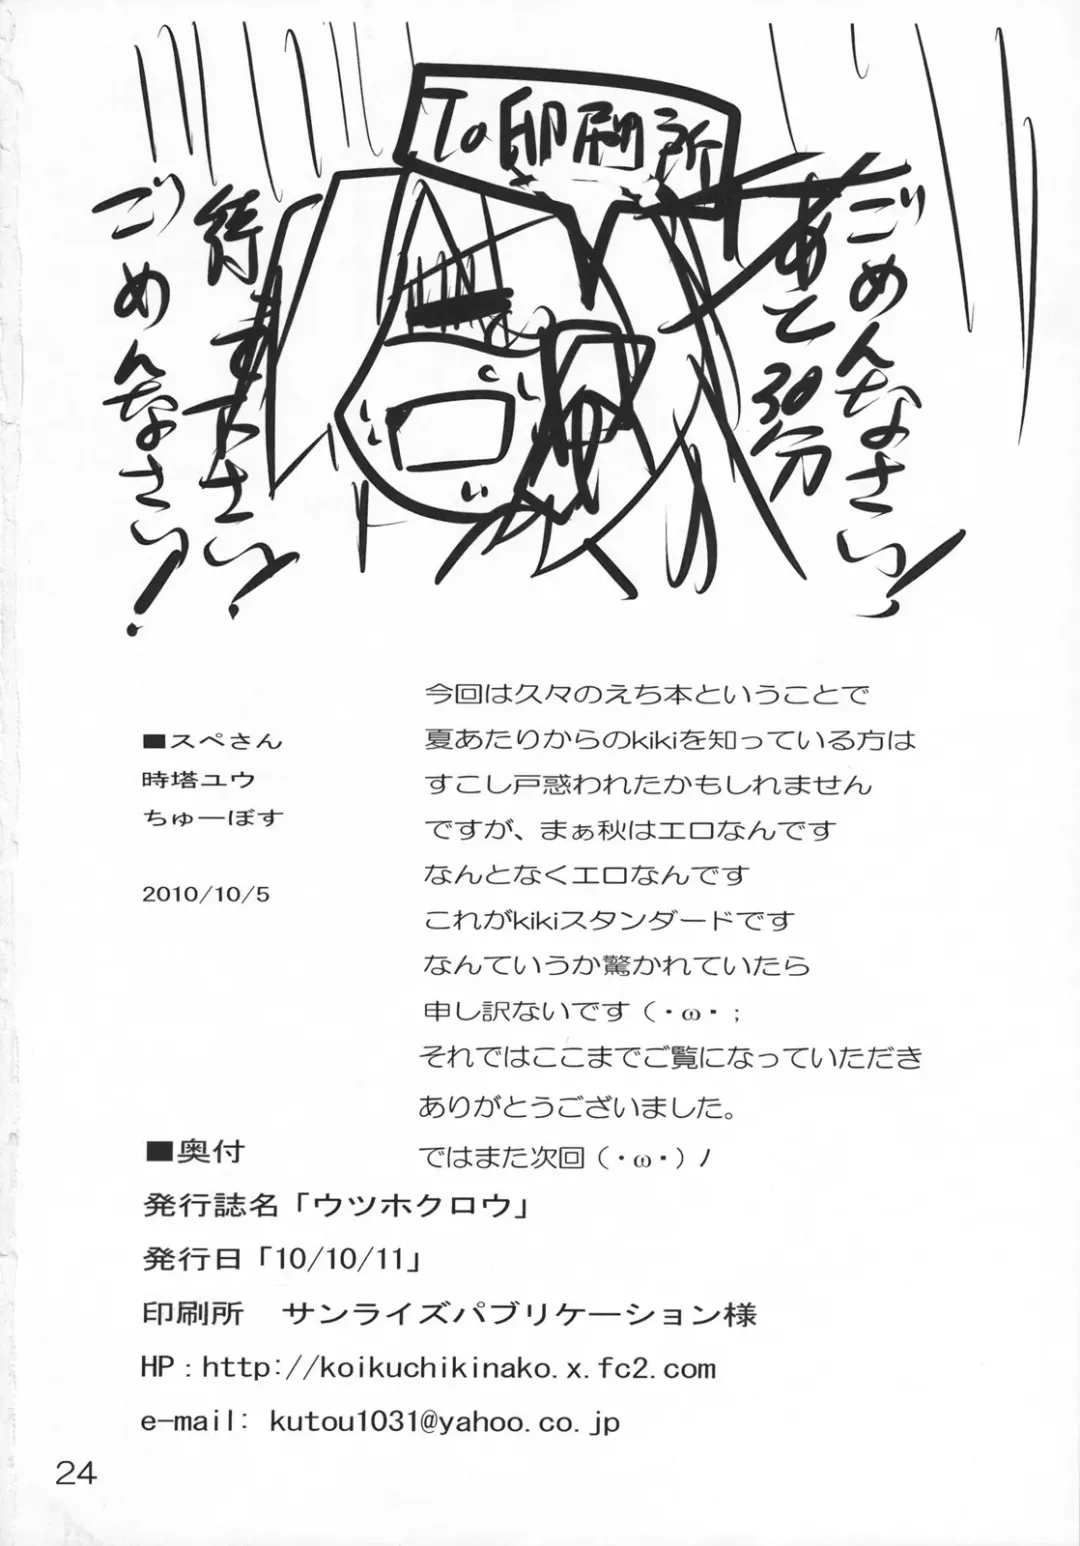 To 印刷所
ごめんなさい!
あて30分
待す下さい!
ごめんなさい!
今回は久々のえち本ということで
夏あたりからのkikiを知っている方は
すこし戸惑われたかもしれません
ですが、まぁ秋はエロなんです
なんとなくエロなんです
これがkikiスタンダードです
なんていうか驚かれていたら
申し訳ないです(・ω・;
それではここまでご覧になっていただき
ありがとうございました。
ではまた次回(・ω・)ノ
■スペさん
時塔ユウ
ちゅーぼす
2010/10/5
■奥付
発行誌名「ウツホクロウ」
発行日「10/10/11」
印刷所　サンライズパブリケーション様
HP:http://koikuchikinako.x.fc2.com
e-mail: kutou1031@yahoo.co.jp
24